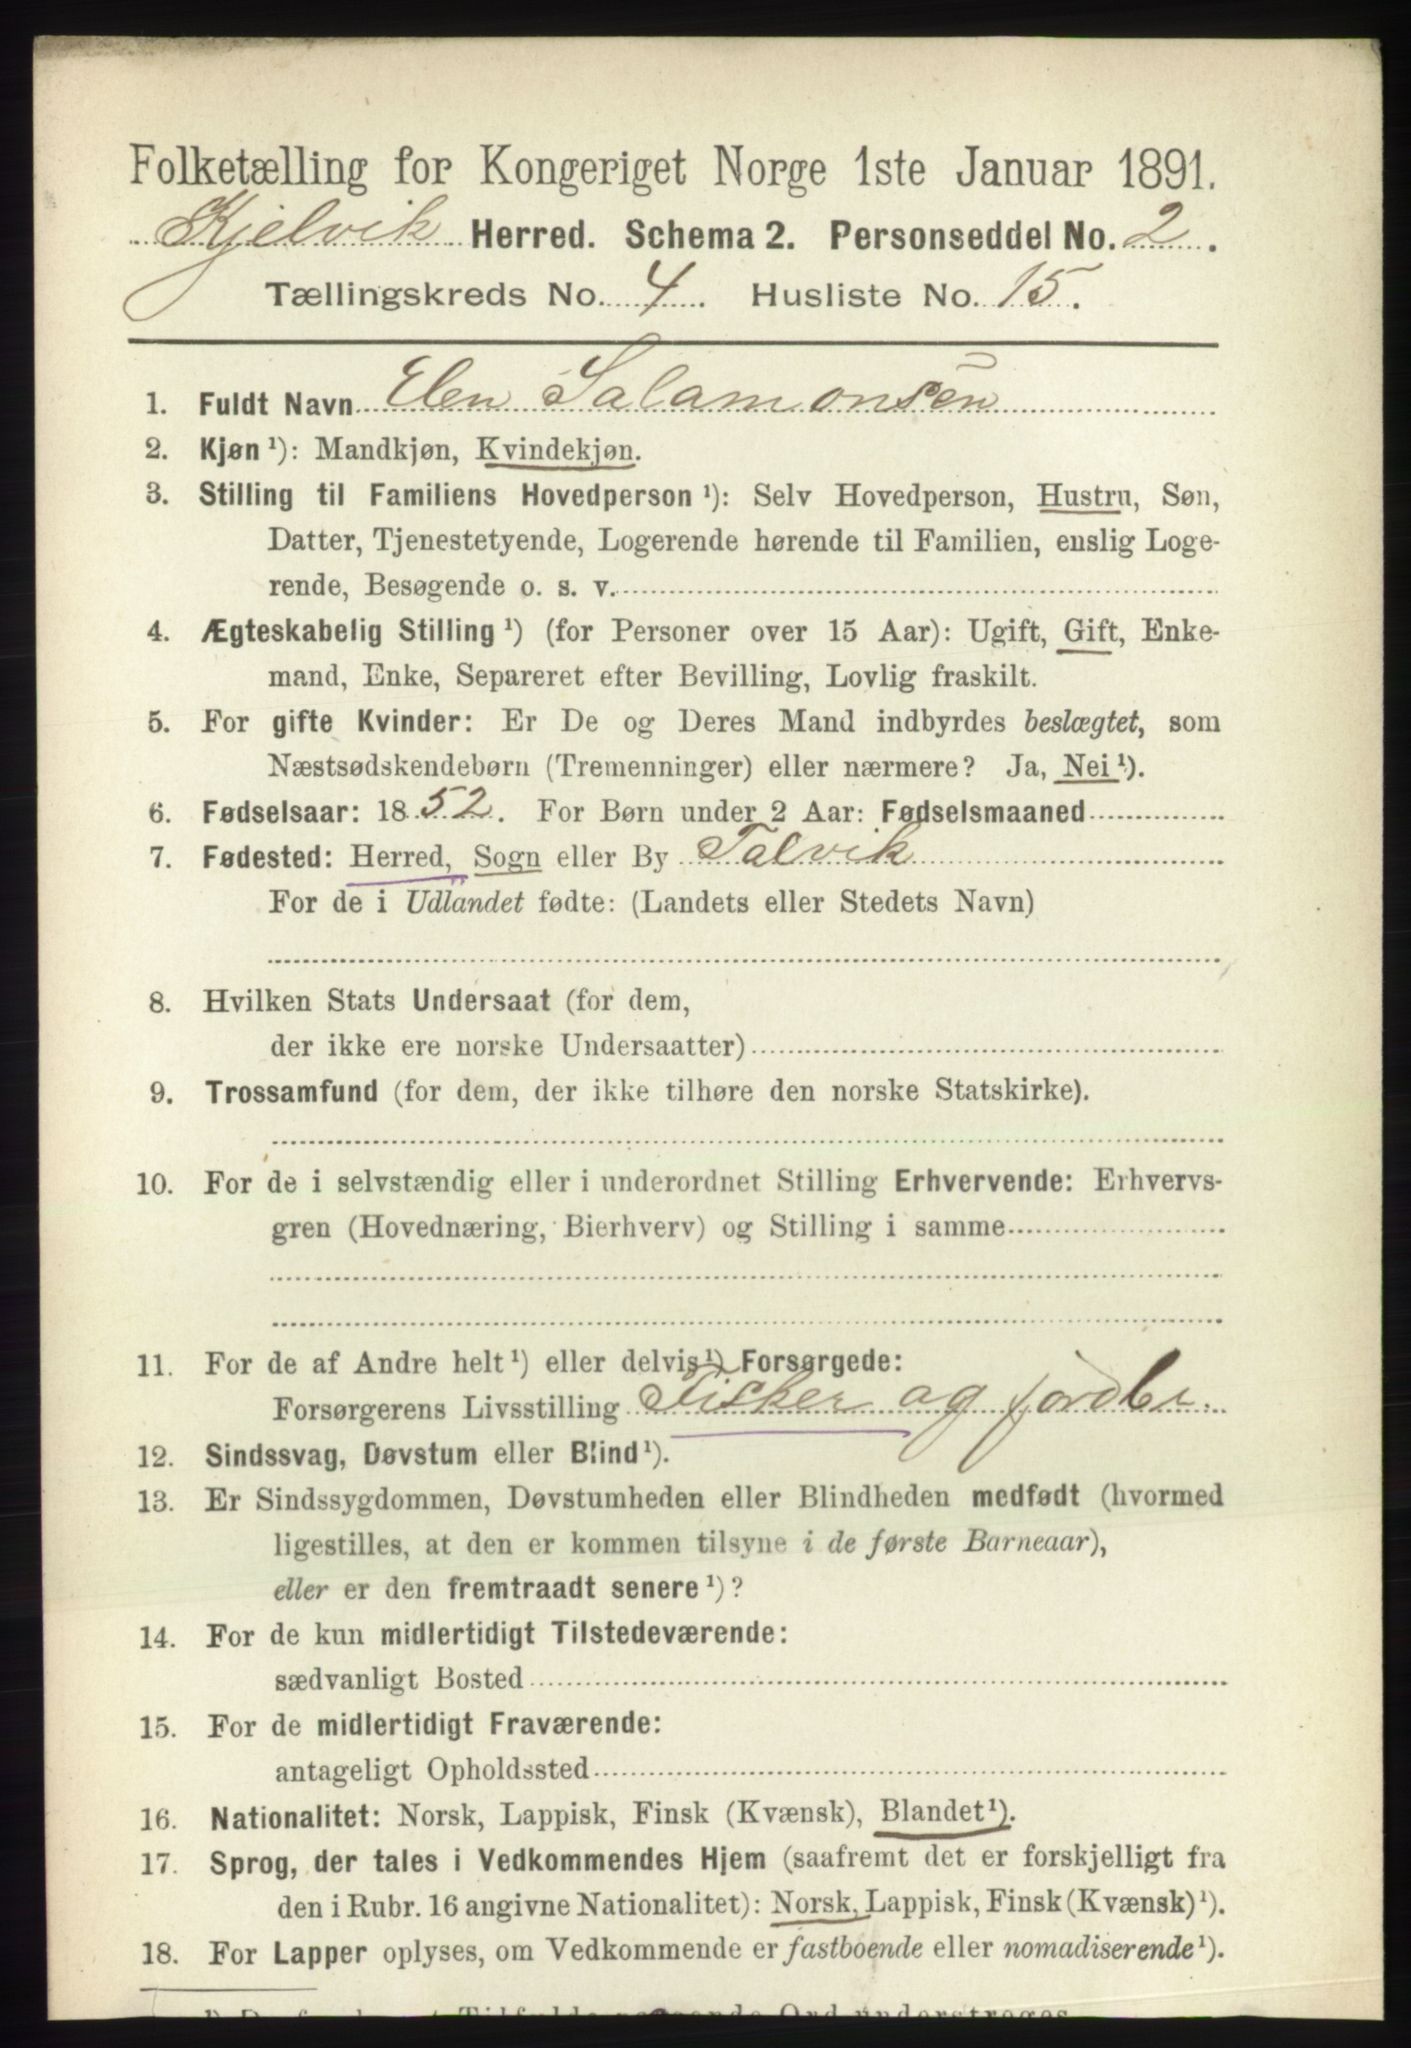 Folketælling for Kongeriget Norge 1ste Januar 1891.
Kjelvik Herred. Schema 2. Personseddel No. 2.
Tællingskreds No. 4. Husliste No. 15.
1. Fuldt Navn Elen Salamonsen
2. Kjøn ¹): Mandkjøn, Kvindekjøn.
3. Stilling til Familiens Hovedperson ¹): Selv Hovedperson, Hustru, Søn,
Datter, Tjenestetyende, Logerende hørende til Familien, enslig Loge-
rende, Besøgende o. s. v.
4. Ægteskabelig Stilling ¹) (for Personer over 15 Aar): Ugift, Gift, Enke-
mand, Enke, Separeret efter Bevilling, Lovlig fraskilt.
5. For gifte Kvinder: Er De og Deres Mand indbyrdes beslægtet, som
Næstsødskendebørn (Tremenninger) eller nærmere? Ja, Nei ¹).
6. Fødselsaar: 1852. For Børn under 2 Aar: Fødselsmaaned
7. Fødested: Herred, Sogn eller By Talvik
For de i Udlandet fødte: (Landets eller Stedets Navn)
8. Hvilken Stats Undersaat (for dem,
der ikke ere norske Undersaatter)
9. Trossamfund (for dem, der ikke tilhøre den norske Statskirke).
10. For de i selvstændig eller i underordnet Stilling Erhvervende: Erhvervs-
gren (Hovednæring, Bierhverv) og Stilling i samme
11. For de af Andre helt ¹) eller delvis ¹) Forsørgede:
Forsørgerens Livsstilling Fisker og jordbr.
12. Sindssvag, Døvstum eller Blind ¹).
13. Er Sindssygdommen, Døvstumheden eller Blindheden medfødt (hvormed
ligestilles, at den er kommen tilsyne i de første Barneaar),
eller er den fremtraadt senere ¹)?
14. For de kun midlertidigt Tilstedeværende:
sædvanligt Bosted
15. For de midlertidigt Fraværende:
antageligt Opholdssted
16. Nationalitet: Norsk, Lappisk, Finsk (Kvænsk), Blandet ¹).
17. Sprog, der tales i Vedkommendes Hjem (saafremt det er forskjelligt fra
den i Rubr. 16 angivne Nationalitet): Norsk, Lappisk, Finsk (Kvænsk) ¹).
18. For Lapper oplyses, om Vedkommende er fastboende eller nomadiserende ¹).